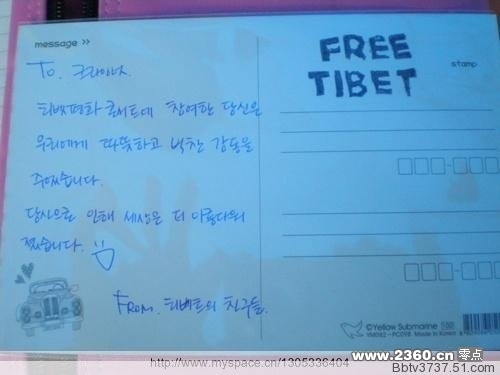 message >>
FREE
TIBET
stamp
To. 크라잉넛.
티벳평화 콘서트에 참여한 당신은
우리에게 따뜻하고 벅찬 감동을
주었습니다.
당신으로 인해 세상은 더 아름다워
졌습니다.
FROM. 티베트의 친구들.
©Yellow Submarine
YM082-PC098 Made in Korea
http://www.myspace.cn/1305336404
www.2360.cn 零点
Bbtv3737.51.com